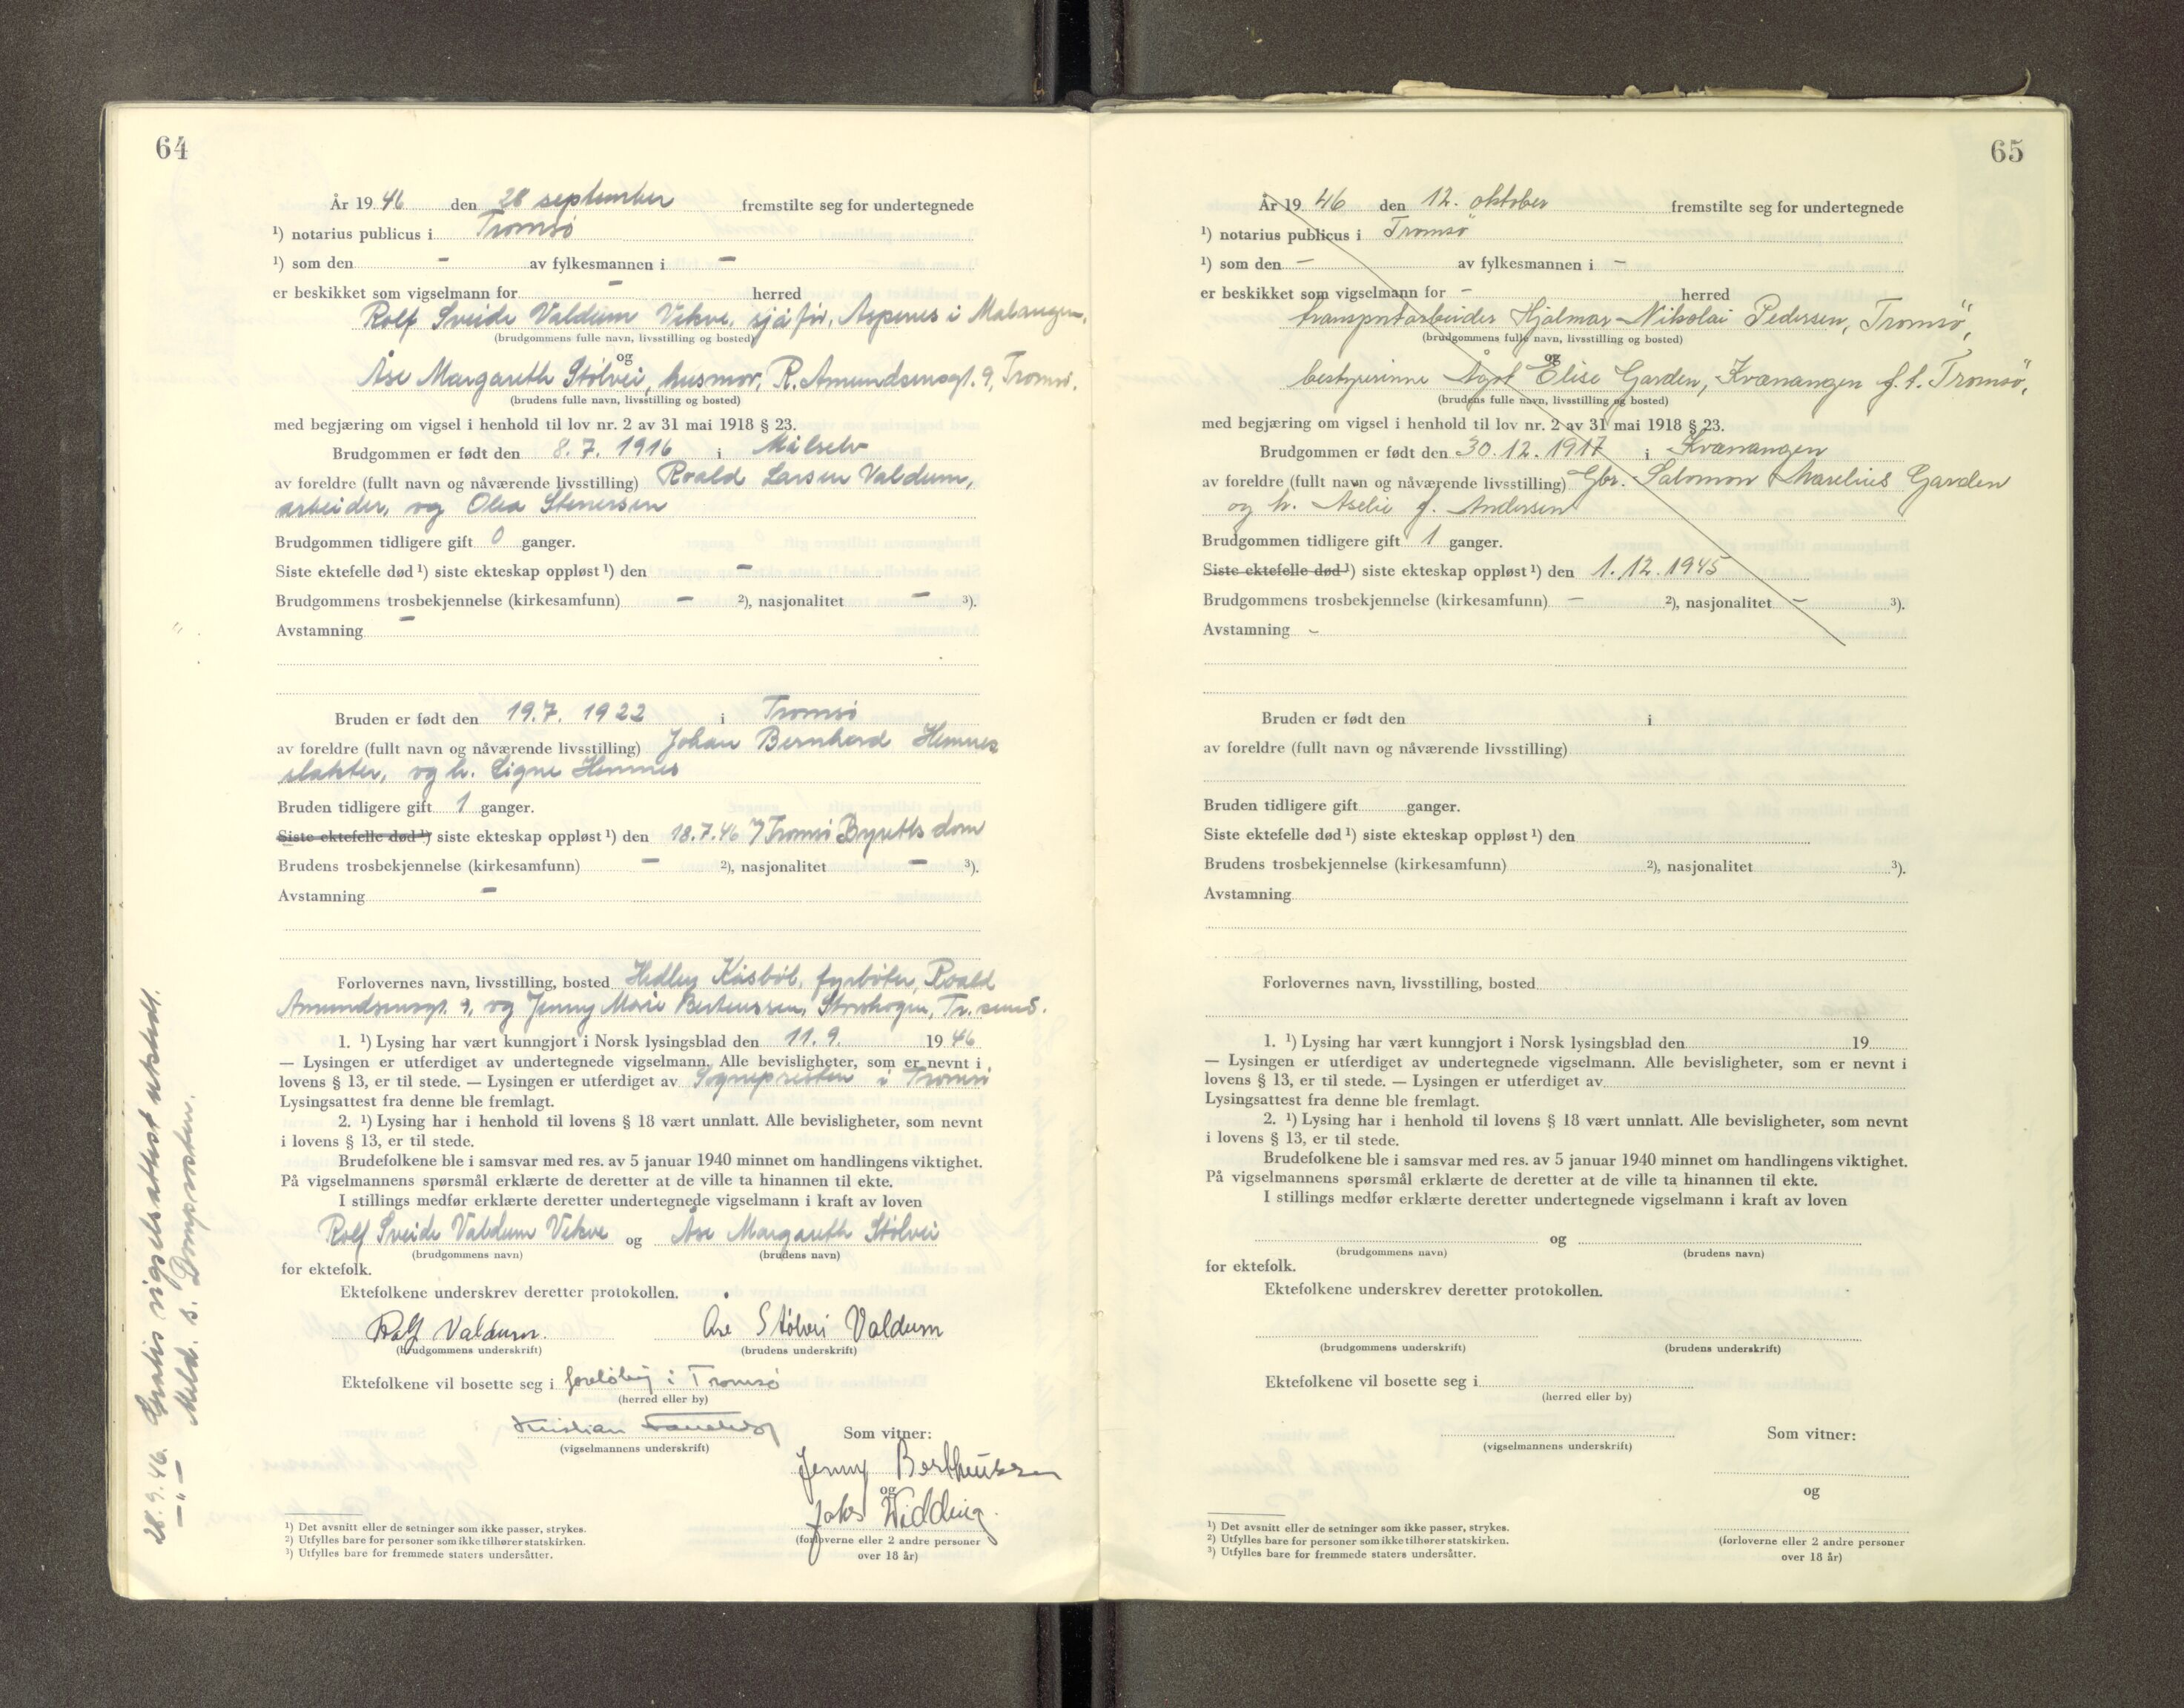 64
År 19 46 den 28 september fremstilte seg for undertegnede
¹) notarius publicus i Tromsø
¹) som den – av fylkesmannen i –
er beskikket som vigselmann for – herred
Rolf Sveide Valdum Vekve, sjåfør, Aspenes i Malangen,
(brudgommens fulle navn, livsstilling og bosted)
og
Åse Margareth Stølvei, husmor, R. Amundsensgt. 9, Tromsø.
(brudens fulle navn, livsstilling og bosted)
med begjæring om vigsel i henhold til lov nr. 2 av 31 mai 1918 § 23.
Brudgommen er født den 8. 7. 1916 i Målselv
av foreldre (fullt navn og nåværende livsstilling) Roald Larsen Valdum,
arbeider, og Olea Stenersen
Brudgommen tidligere gift 0 ganger.
Siste ektefelle død ¹) siste ekteskap oppløst ¹) den –
Brudgommens trosbekjennelse (kirkesamfunn) – ²), nasjonalitet – ³).
Avstamning –
Bruden er født den 19.7. 1922 i Tromsø
av foreldre (fullt navn og nåværende livsstilling) Johan Bernhard Hemnes
slakter, og h. Signe Hemnes
Bruden tidligere gift 1 ganger.
Siste ektefelle død ¹) siste ekteskap oppløst ¹) den 18.7.46 Tromsø Byretts dom
Brudens trosbekjennelse (kirkesamfunn) – ²), nasjonalitet – ³).
Avstamning –
Forlovernes navn, livsstilling, bosted Hedley Kåsbøl, fyrbøter, Roald
Amundsensgt. 9, og Jenny Marie Bertheussen, Storskogen, Tr.sund.
1. ¹) Lysing har vært kunngjort i Norsk lysingsblad den 11. 9. 19 46
— Lysingen er utferdiget av undertegnede vigselmann. Alle bevisligheter, som er nevnt i
lovens § 13, er til stede. — Lysingen er utferdiget av Sognepresten i Tromsø
Lysingsattest fra denne ble fremlagt.
2. ¹) Lysing har i henhold til lovens § 18 vært unnlatt. Alle bevisligheter, som nevnt
i lovens § 13, er til stede.
Brudefolkene ble i samsvar med res. av 5 januar 1940 minnet om handlingens viktighet.
På vigselmannens spørsmål erklærte de deretter at de ville ta hinannen til ekte.
I stillings medfør erklærte deretter undertegnede vigselmann i kraft av loven
Rolf Sveide Valdum Vekve og Åse Margareth Stølvei
(brudgommens navn) (brudens navn)
for ektefolk.
Ektefolkene underskrev deretter protokollen.
Rolf Valdum. Åse Stølvei Valdum
(brudgommens underskrift) (brudens underskrift)
Ektefolkene vil bosette seg i foreløbig i Tromsø
(herred eller by)
Kristian
(vigselmannens underskrift)
Som vitner:
Jenny Bertheussen
og
Widding
(forloverne eller 2 andre personer
over 18 år)
¹) Det avsnitt eller de setninger som ikke passer, strykes.
²) Utfylles bare for personer som ikke tilhører statskirken.
³) Utfylles bare for fremmede staters undersåtter.
28.9.46. Gratis vigselsattest utstedt.
— " — Meld. s. Domprosten.
65
År 19 46 den 12. oktober fremstilte seg for undertegnede
¹) notarius publicus i Tromsö
¹) som den – av fylkesmannen i –
er beskikket som vigselmann for – herred
transportarbeider Hjalmar Nikolai Pedersen, Tromsö,
(brudgommens fulle navn, livsstilling og bosted)
og
bestyrerinne Ågot Elise Garden, Kvænangen f.t. Tromsö,
(brudens fulle navn, livsstilling og bosted)
med begjæring om vigsel i henhold til lov nr. 2 av 31 mai 1918 § 23.
Brudgommen er født den 30. 12. 1917 i Kvænangen
av foreldre (fullt navn og nåværende livsstilling) Gbr. Salomon Marelius Garden
og h. Aselie f. Andersen
Brudgommen tidligere gift 1 ganger.
Siste ektefelle død ¹) siste ekteskap oppløst ¹) den 1. 12. 1945
Brudgommens trosbekjennelse (kirkesamfunn) – ²), nasjonalitet – ³).
Avstamning –
Bruden er født den i
av foreldre (fullt navn og nåværende livsstilling)
Bruden tidligere gift ganger.
Siste ektefelle død ¹) siste ekteskap oppløst ¹) den
Brudens trosbekjennelse (kirkesamfunn) ²), nasjonalitet ³).
Avstamning
Forlovernes navn, livsstilling, bosted
1. ¹) Lysing har vært kunngjort i Norsk lysingsblad den 19
— Lysingen er utferdiget av undertegnede vigselmann. Alle bevisligheter, som er nevnt i
lovens § 13, er til stede. — Lysingen er utferdiget av
Lysingsattest fra denne ble fremlagt.
2. ¹) Lysing har i henhold til lovens § 18 vært unnlatt. Alle bevisligheter, som nevnt
i lovens § 13, er til stede.
Brudefolkene ble i samsvar med res. av 5 januar 1940 minnet om handlingens viktighet.
På vigselmannens spørsmål erklærte de deretter at de ville ta hinannen til ekte.
I stillings medfør erklærte deretter undertegnede vigselmann i kraft av loven
og
(brudgommens navn) (brudens navn)
for ektefolk.
Ektefolkene underskrev deretter protokollen.
(brudgommens underskrift) (brudens underskrift)
Ektefolkene vil bosette seg i
(herred eller by)
(vigselmannens underskrift)
Som vitner:
og
(forloverne eller 2 andre personer
over 18 år)
¹) Det avsnitt eller de setninger som ikke passer, strykes.
²) Utfylles bare for personer som ikke tilhører statskirken.
³) Utfylles bare for fremmede staters undersåtter.